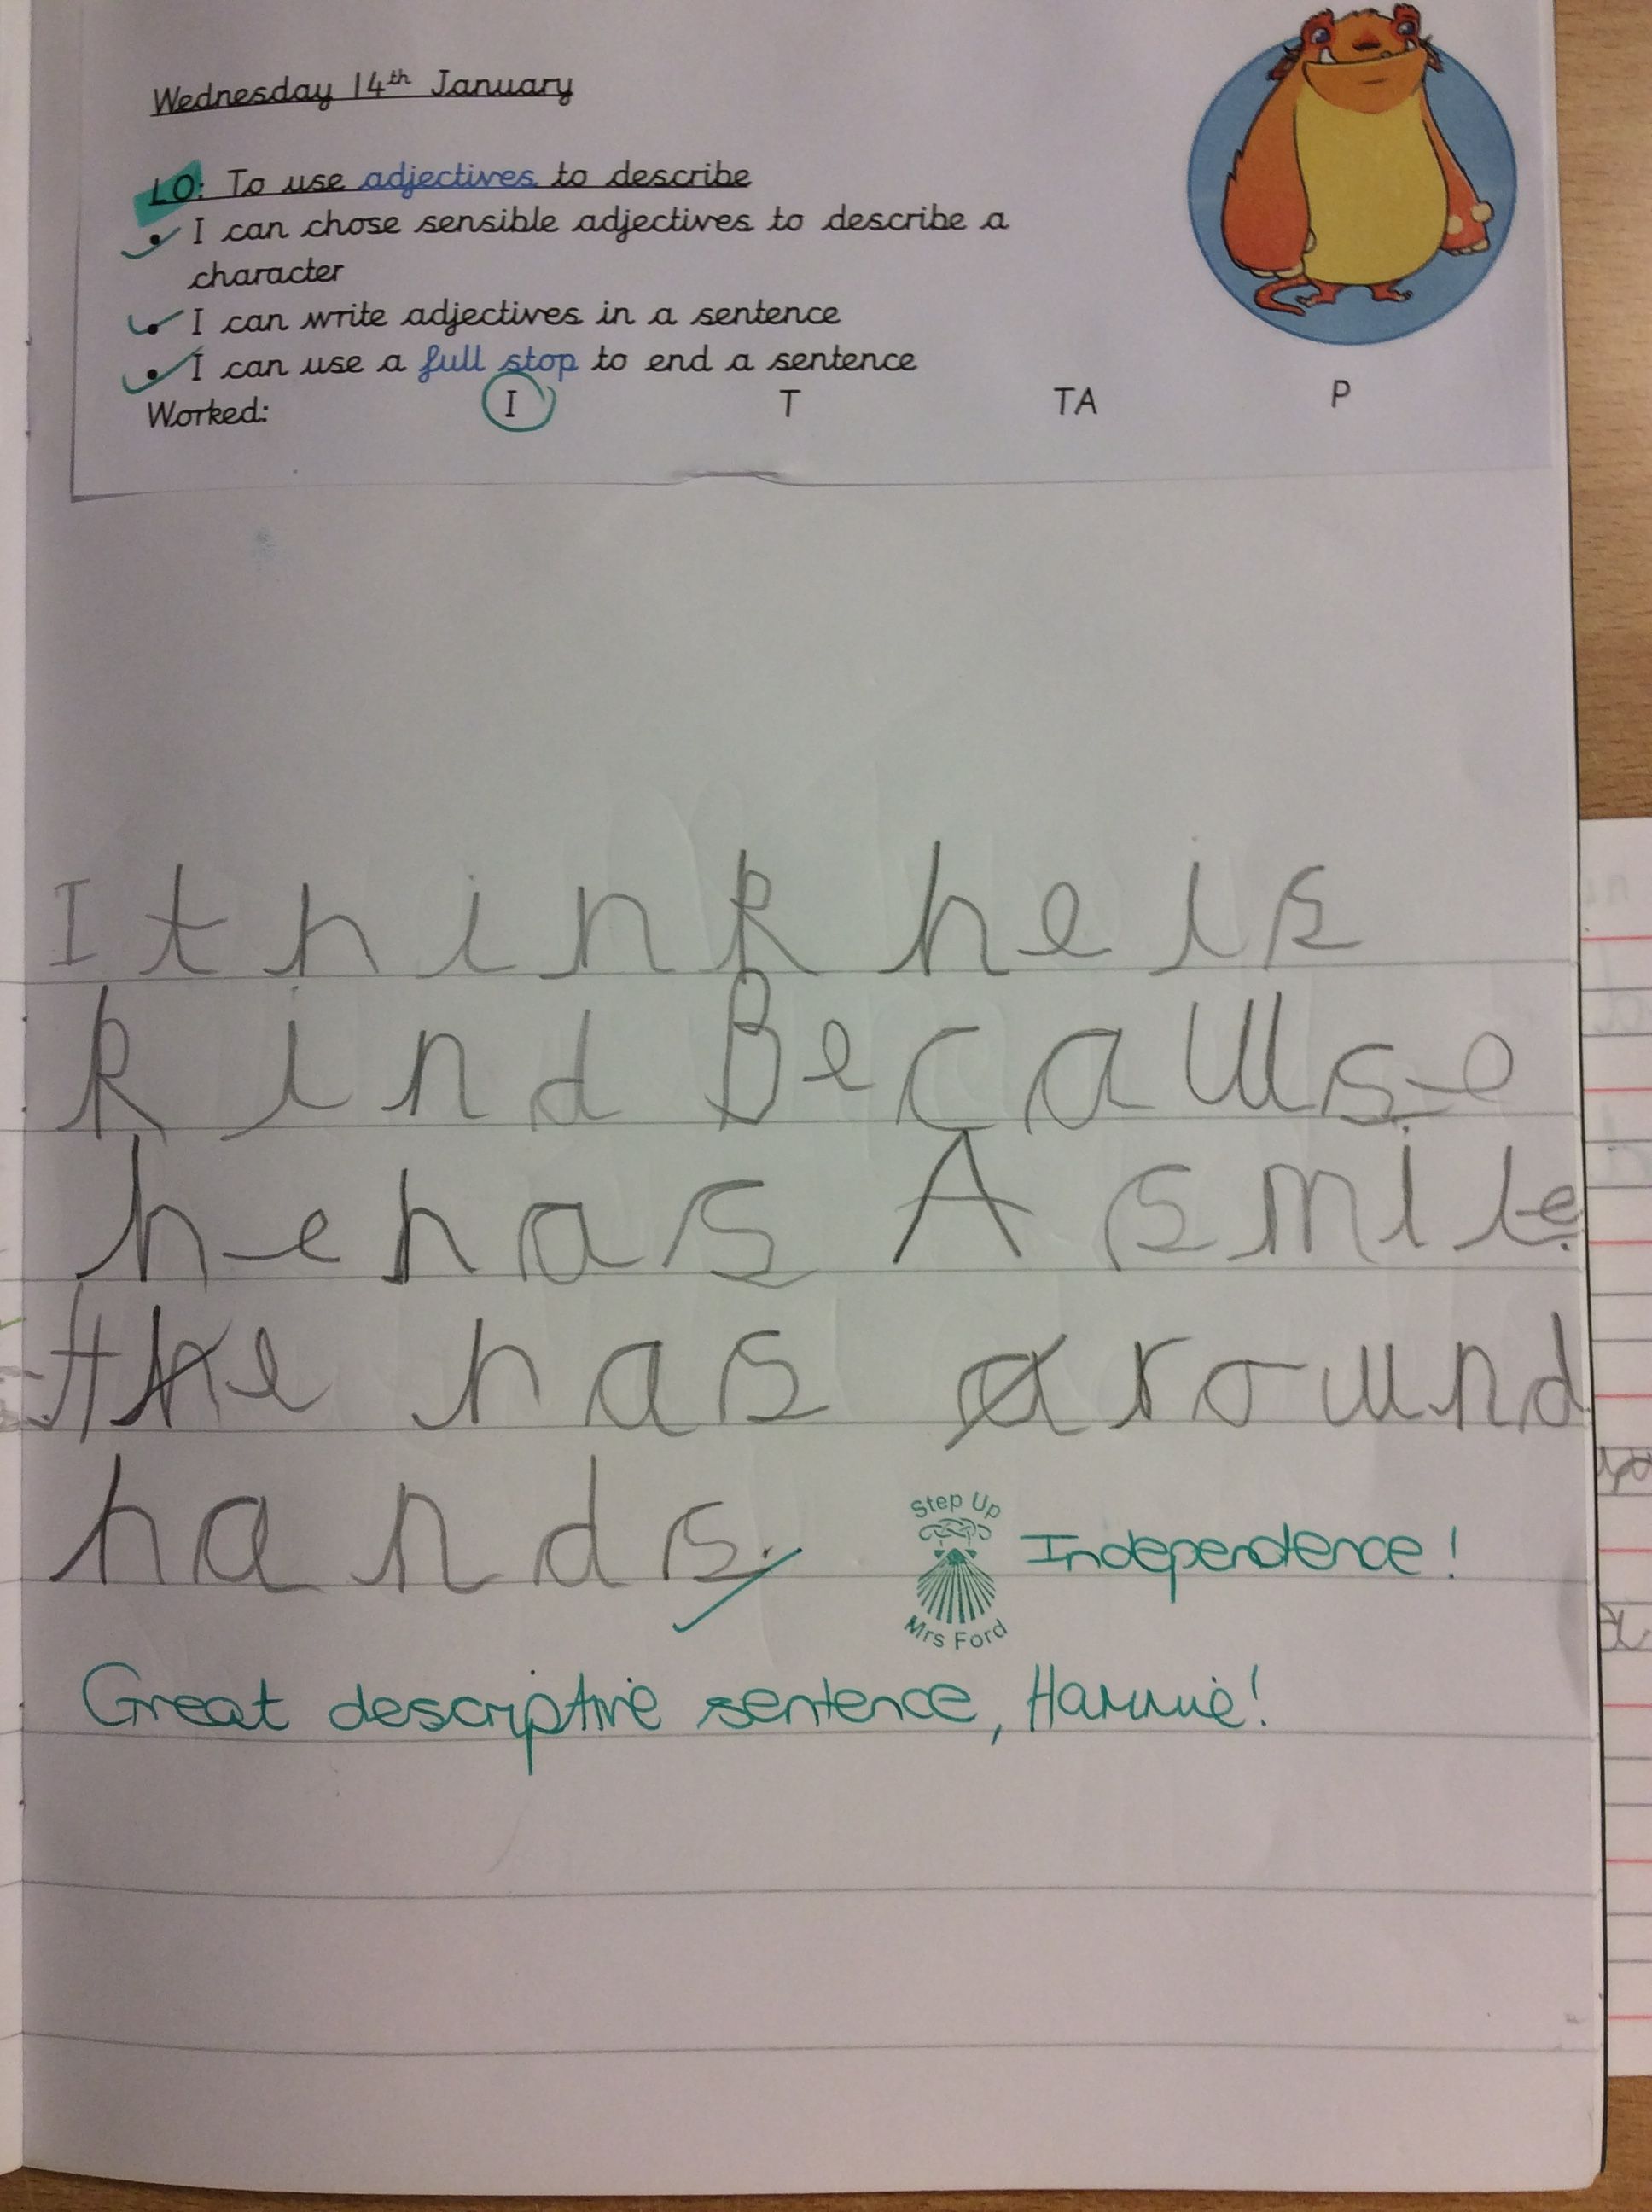 Wednesday 14th January
LO: To use adjectives to describe
• I can chose sensible adjectives to describe a
character
• I can write adjectives in a sentence
• I can use a full stop to end a sentence
Worked: I T TA P
I think he is
kind Because
he has A smile.
He has round
hands.
Step Up
Mrs Ford
Independence!
Great descriptive sentence, Hammie!